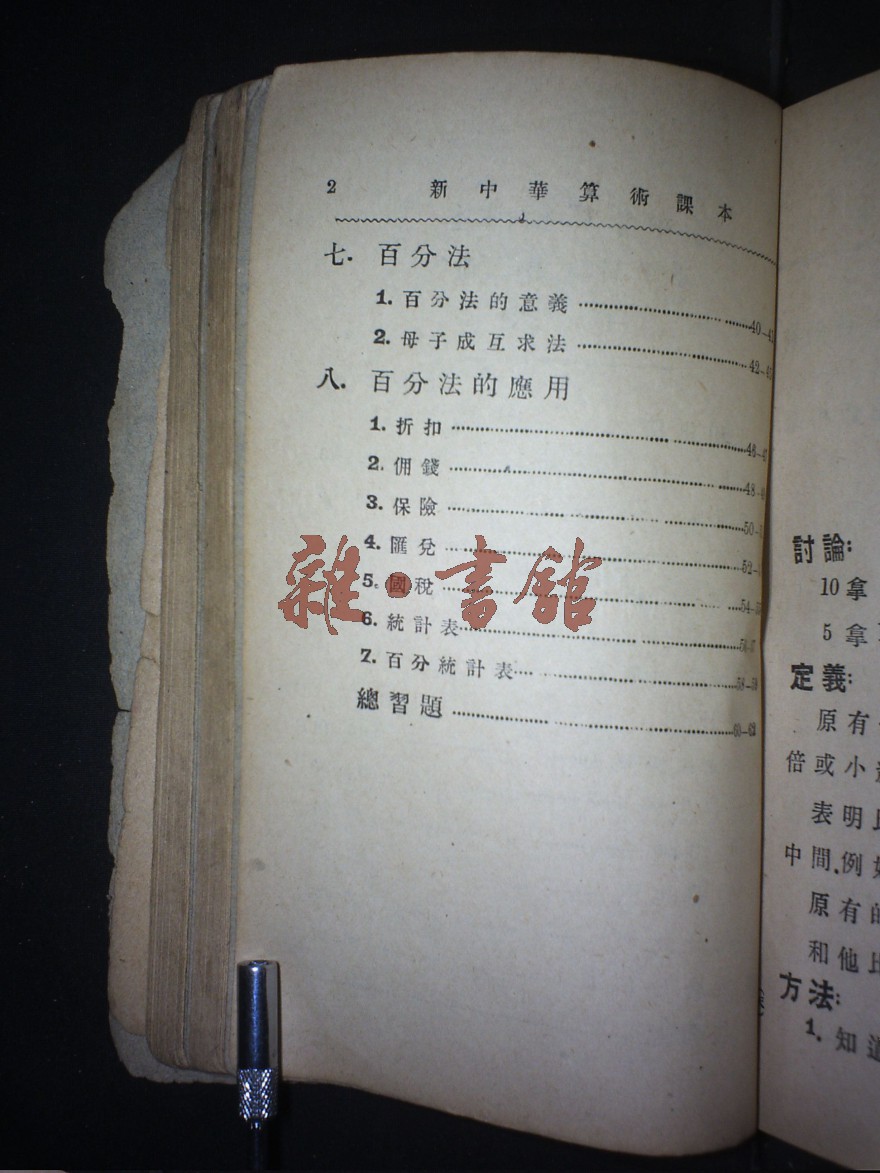 2 新中華算術課本
七. 百分法
1. 百分法的意義 40-41
2. 母子成互求法 42-4
八. 百分法的應用
1. 折扣 46-4
2. 佣錢 48-4
3. 保險 50-
4. 匯兌 52-
5. 國稅 54-5
6. 統計表 56-57
7. 百分統計表 58-59
總習題 60-62
雜·書館
討論:
10拿
5拿
定義:
原有
倍或小
表明
中間,例如
原有的
和他比
方法:
1. 知道